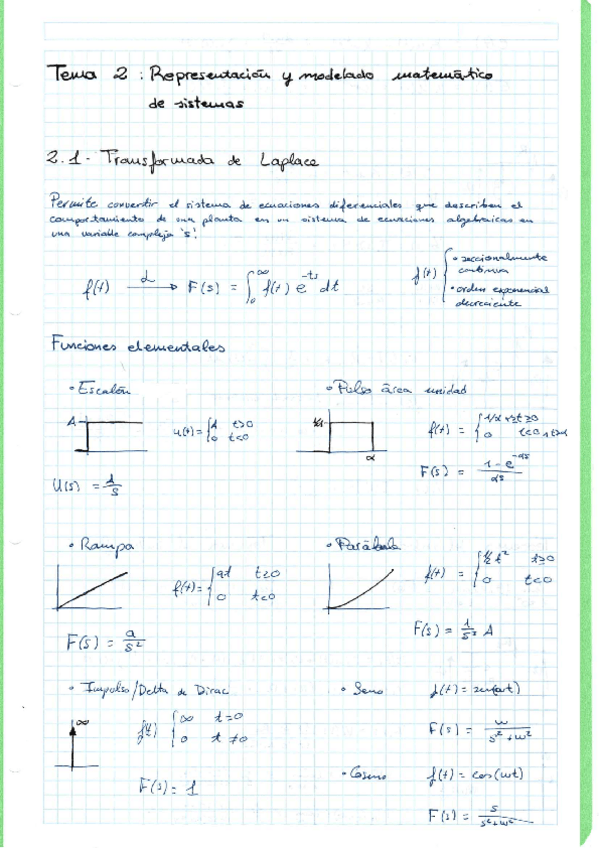 Tema 2 : Representación y modelado matemático
de sistemas
2.1- Transformada de Laplace
Permite convertir el sistema de ecuaciones diferenciales que describen el
comportamiento de una planta en un sistema de ecuaciones algebraicas en
una variable compleja 's'.
f(t) —L→ F(s) = ∫₀^∞ f(t) e^-ts dt
f(t) { • seccionalmente
continua
• orden exponencial
decreciente
Funciones elementales
• Escalón
A
u(t) = { A t>0
0 t<0
U(s) = 1/s
• Pulso área unidad
1/α
α
f(t) = {
0
F(s) = (1 - e^-αs)/αs
• Rampa
f(t) = { at t≥0
0 t<0
F(s) = a/s²
• Parábola
f(t) = { ½ t² t≥0
0 t<0
F(s) = 1/s³ A
• Impulso/Delta de Dirac
∞
f(t) { ∞ t=0
0 t≠0
F(s) = 1
• Seno f(t) = sen(ωt)
F(s) = ω/(s²+ω²)
• Coseno f(t) = cos(ωt)
F(s) = s/(s²+ω²)